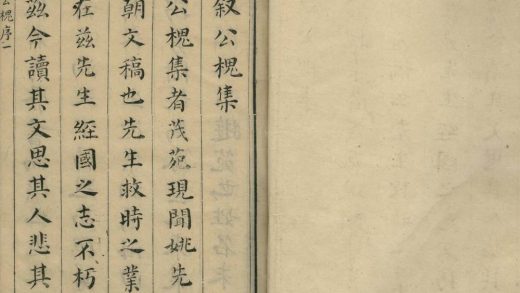 叙公槐集
公槐集者茂苑現聞姚先
朝文稿也先生救時之業
在兹先生經國之志不朽
兹今讀其文思其人悲其
公槐序一